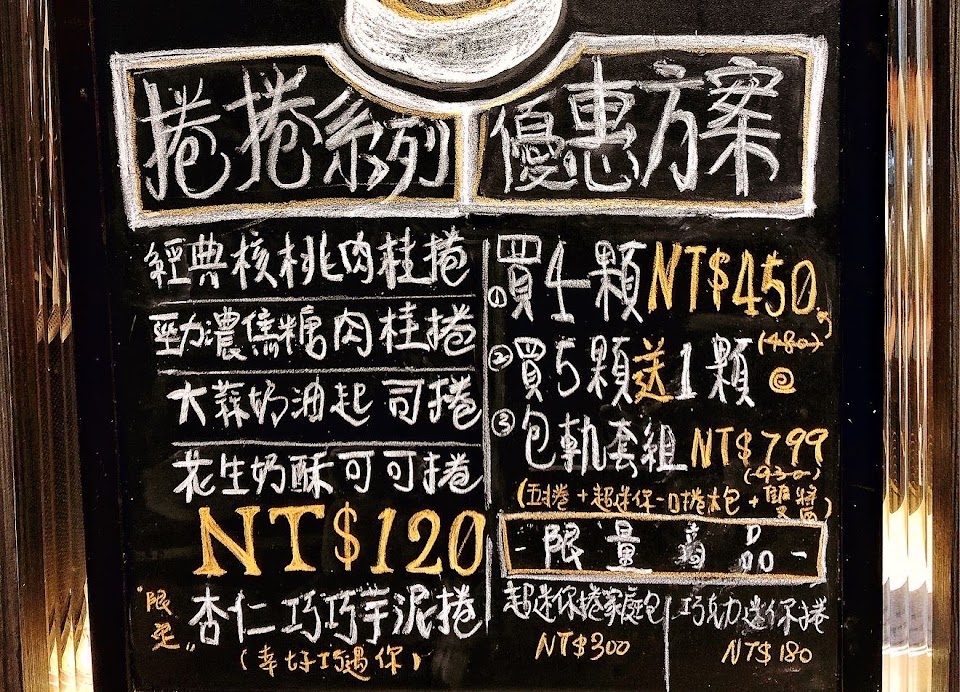 捲捲系列
經典核桃肉桂捲
勁濃焦糖肉桂捲
大蒜奶油起司捲
花生奶酥可可捲
NT$120
"限定"
杏仁巧巧芋泥捲
(幸好巧遇你)
優惠方案
①買4顆NT$450
(480)
②買5顆送1顆
③包軌套組NT$799
(930)
(五捲+超迷你一口捲大包+雙醬)
-限量商品-
超迷你捲家庭包
NT$300
巧克力迷你捲
NT$180